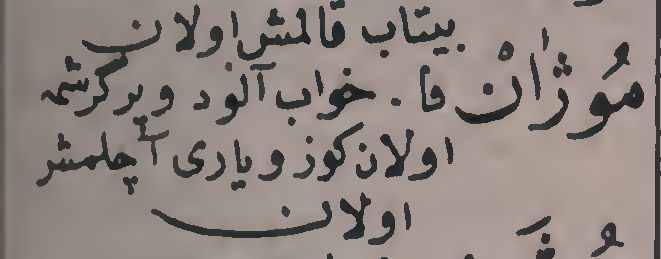 بیتاب قالمش اولان
مُوژَانْ فا . خواب آلود و پر کرشمه
اولان کوز و یاری آچلمش
اولان